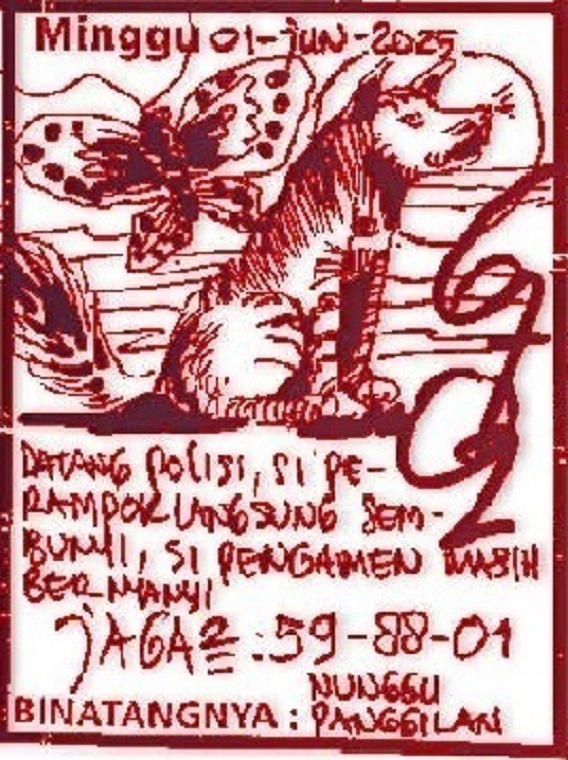 Minggu 01-JUN-2025
DATANG POLISI, SI PE-
RAMPOK LANGSUNG SEM-
BUNYI, SI PENGAMEN MASIH
BERNYANYI
JAGA2 : 59-88-01
NUNGGU
BINATANGNYA : PANGGILAN